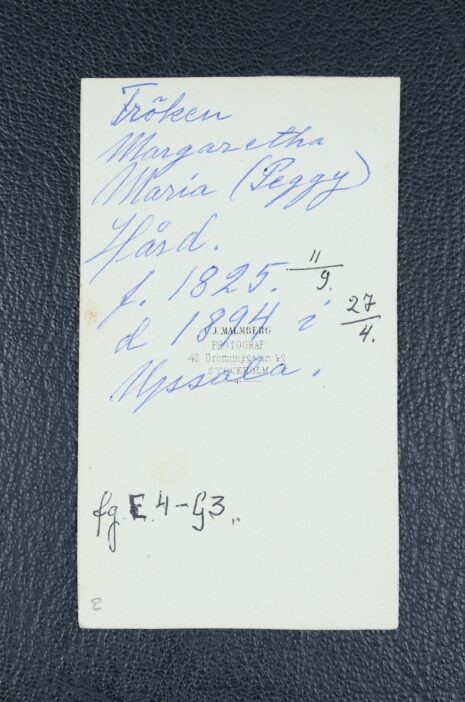 Fröken
Margaretha
Maria (Peggy)
Hård.
f. 1825. 11/9.
d 1894 i 27/4.
Upsala.
J MALMBERG
PHOTOGRAF
42 Drottninggatan 42
STOCKHOLM
fg. E. 4-G3.